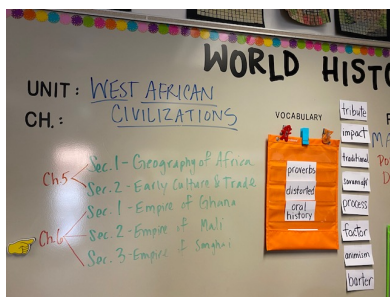 WORLD HIST
UNIT: WEST AFRICAN
CH.: CIVILIZATIONS
Ch.5
Sec. 1 - Geography of Africa
Sec. 2 - Early Culture & Trade
Ch.6
Sec. 1 - Empire of Ghana
Sec. 2 - Empire of Mali
Sec. 3 - Empire of Songhai
VOCABULARY
proverbs
distorted
oral
history
tribute
impact
traditional
process
factor
animism
barter